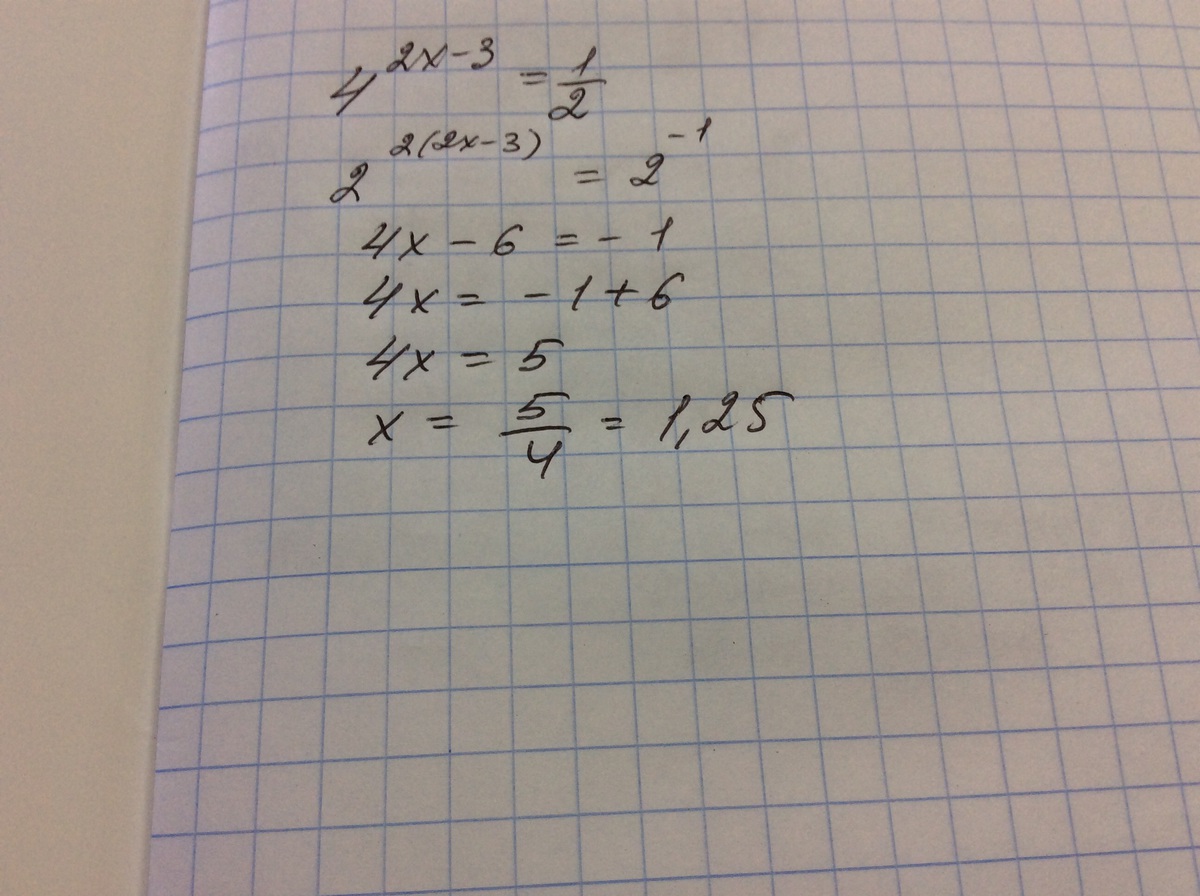 4^{2x-3} = \frac{1}{2}
2^{2(2x-3)} = 2^{-1}
4x - 6 = - 1
4x = - 1 + 6
4x = 5
x = \frac{5}{4} = 1,25